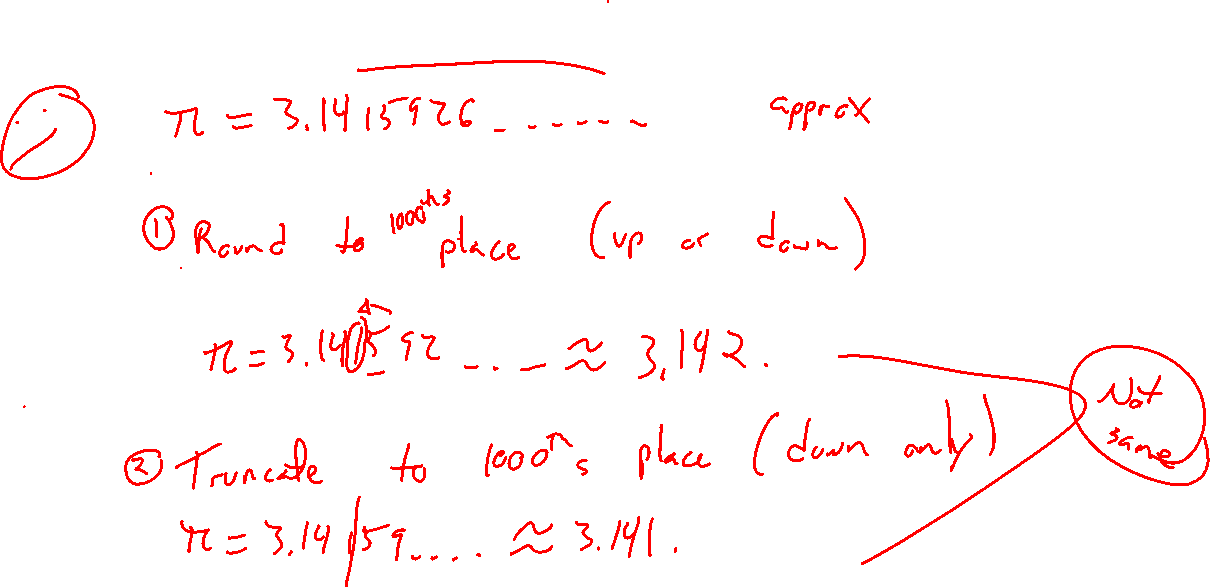 π = 3.1415926 ------ approx
① Round to 1000ths place (up or down)
π = 3.141592 ... ≈ 3.142.
Not same
② Truncate to 1000ths place (down only)
π = 3.14159.... ≈ 3.141.